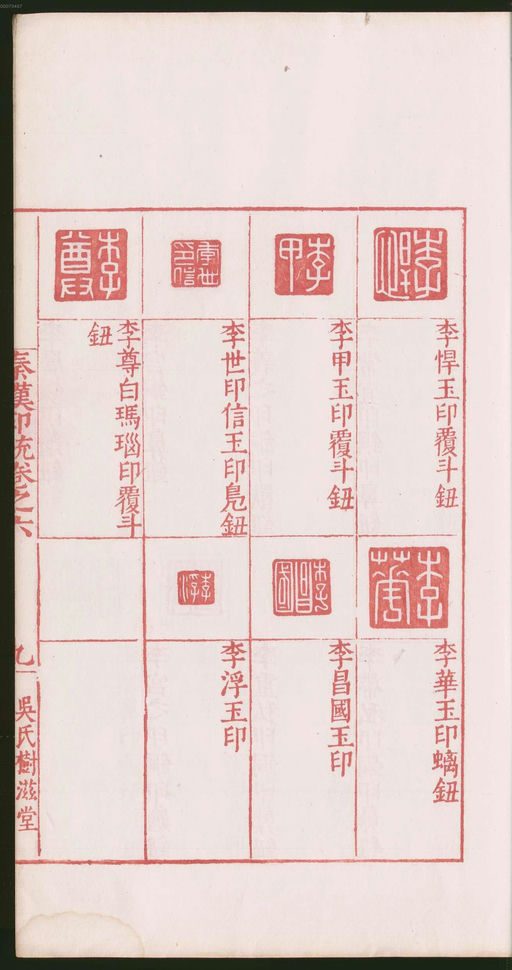 李悍玉印覆斗鈕
李甲玉印覆斗鈕
李世印信玉印鳧鈕
李尊白瑪瑙印覆斗
鈕
李華玉印螭鈕
李昌國玉印
李浮玉印
秦漢印統卷之六
吳氏樹滋堂
00073467